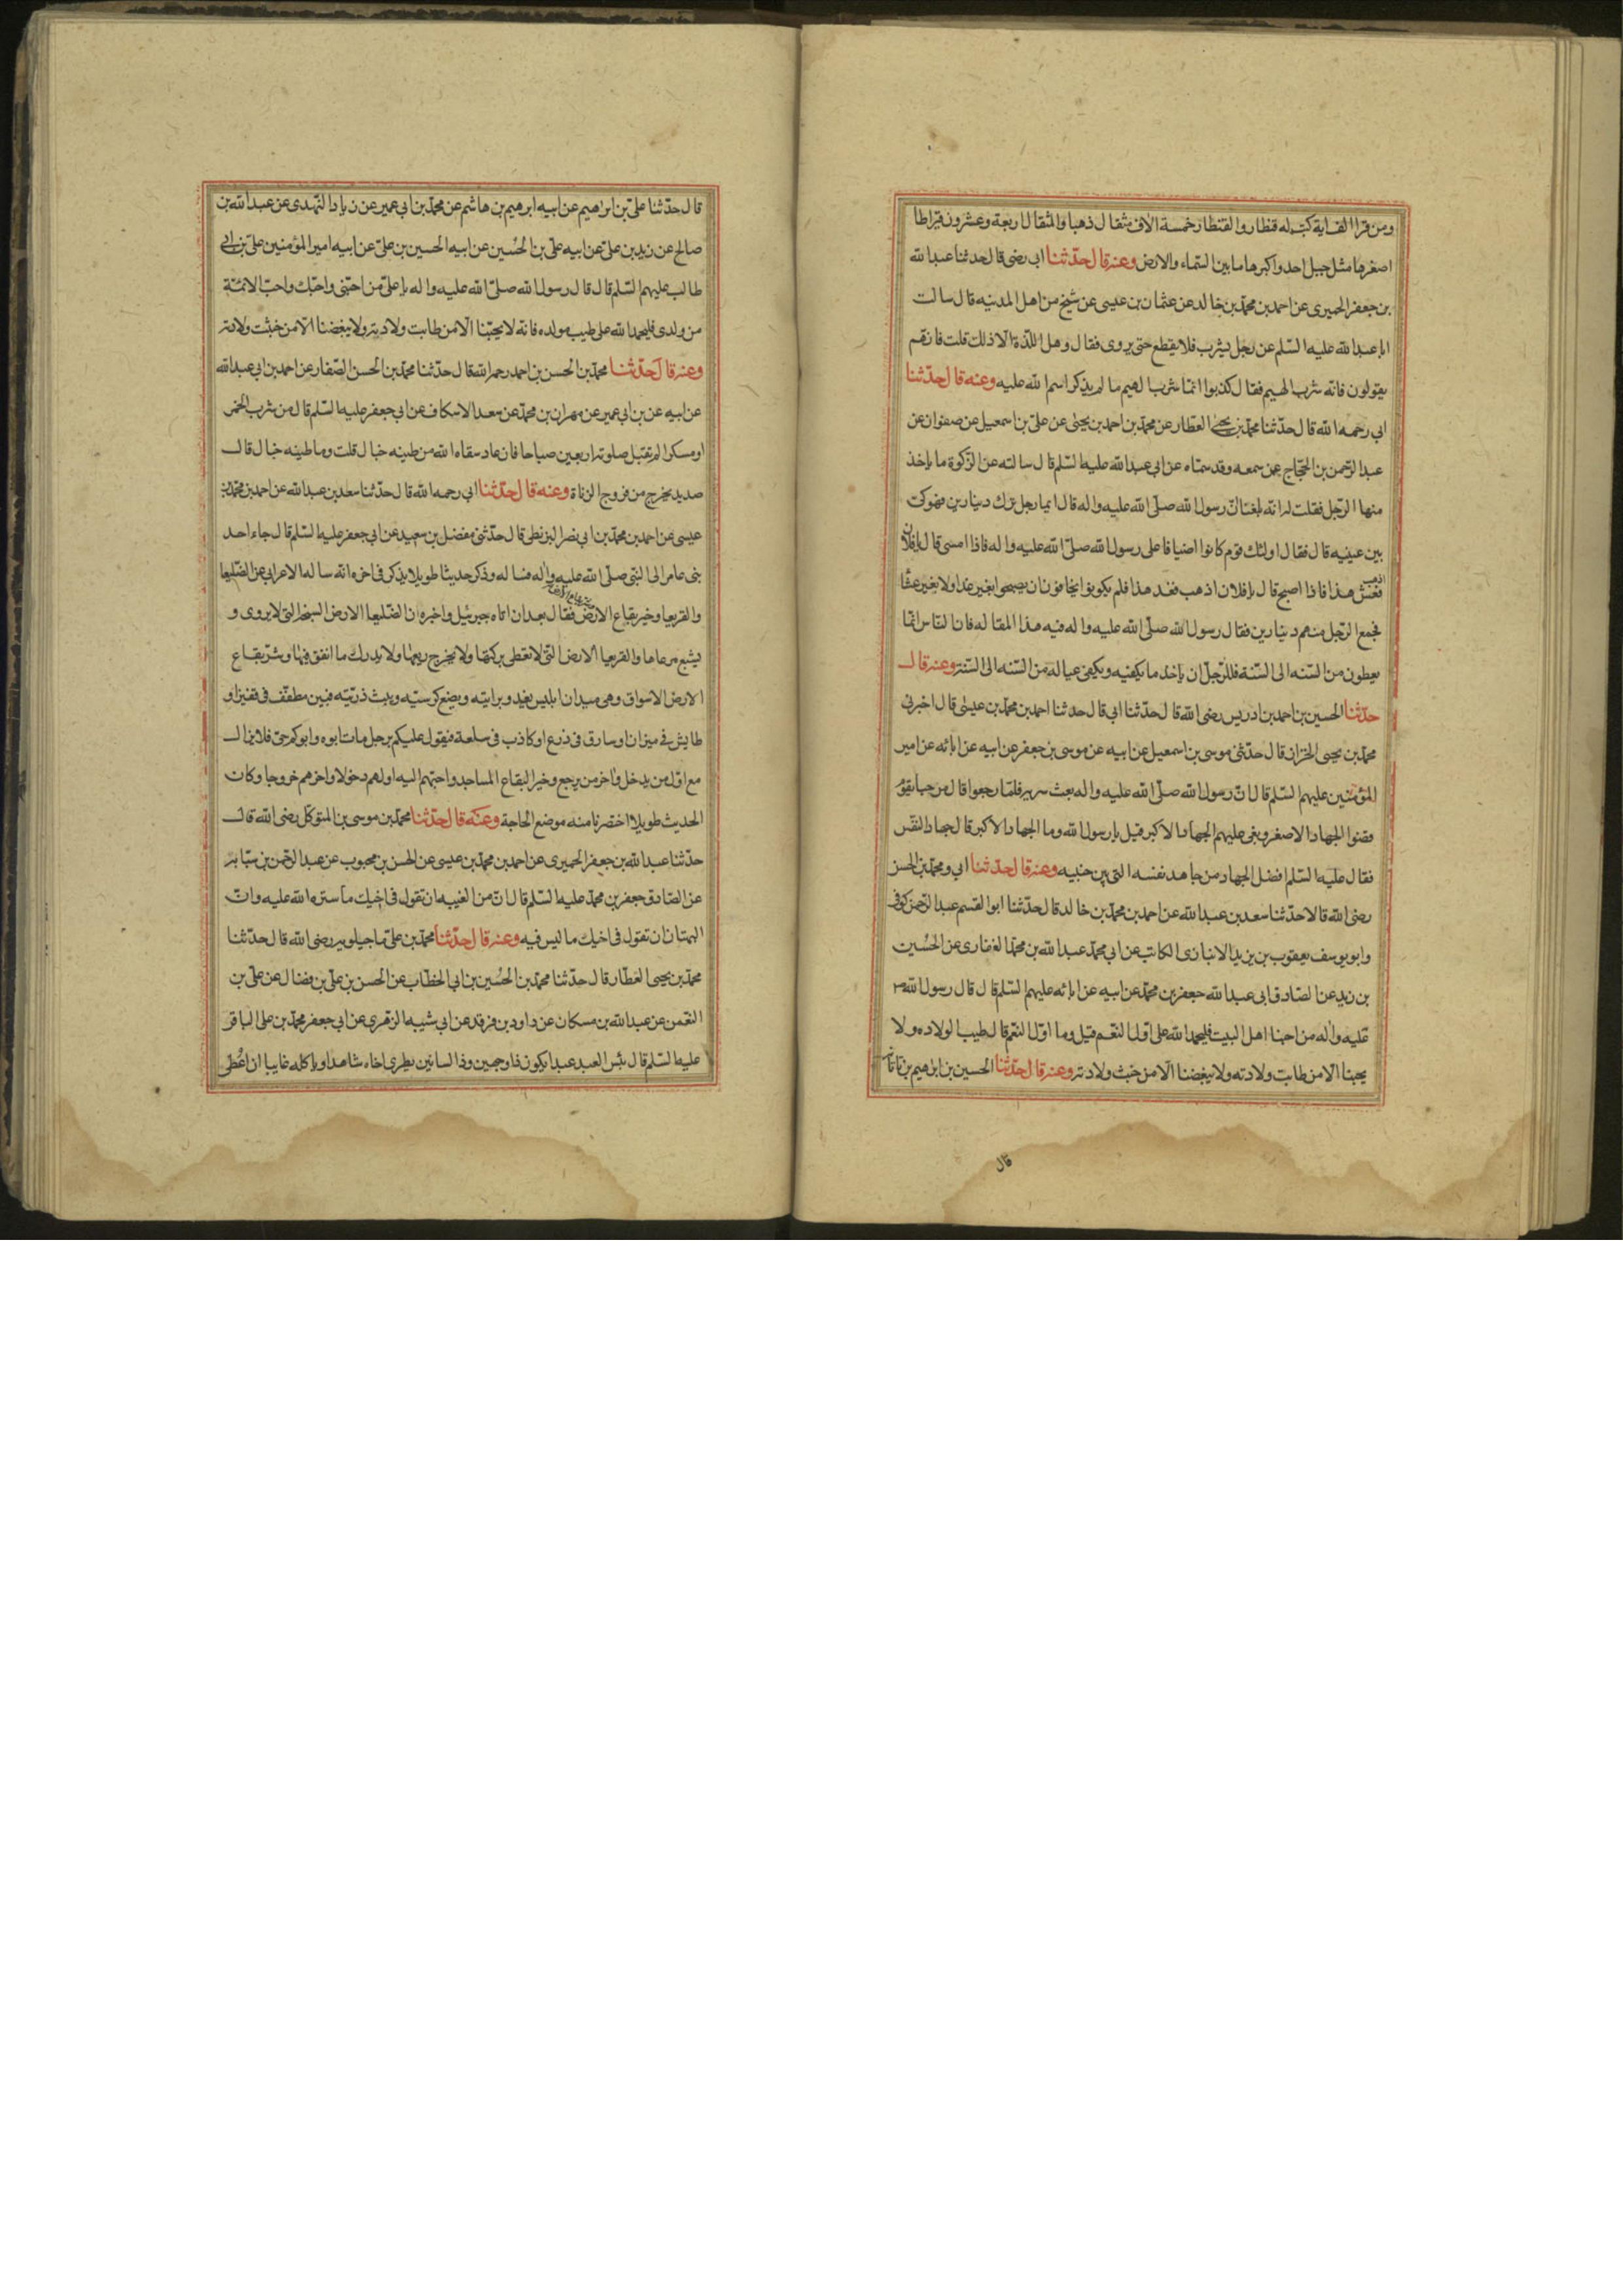 ومن قرا الف اية كتب له قنطار والقنطار خمسة الاف مثقال ذهبا والمثقال اربعة وعشرون قيراطا
اصغرها مثل جبل احد واكبرها ما بين السماء والارض وعنه قال حدثنا ابي رضى قال حدثنا عبد الله
بن جعفر الحميرى عن احمد بن محمد بن خالد عن عثمان بن عيسى عن شيخ من اهل المدينه قال سالت
ابا عبد الله عليه السلم عن رجل يشرب فلا يقطع حتى يروى فقال وهل اللذة الا ذلك قلت فانهم
يقولون فانه شرب الهيم فقال كذبوا انما شرب الهيم ما لم يذكر اسم الله عليه وعنه قال حدثنا
ابي رحمه الله قال حدثنا محمد بن يحيى العطار عن محمد بن احمد بن يحيى عن على بن اسمعيل عن صفوان عن
عبد الرحمن بن الحجاج عمن سمعه وقد سماه عن ابي عبد الله عليه السلم قال سالته عن الزكوة ما ياخذ
منها الرجل فقلت له انه بلغنا ان رسول الله صلى الله عليه واله قال ايما رجل ترك دينارين فهو كى
بين عينيه قال فقال اولئك قوم كانوا اضيافا على رسول الله صلى الله عليه واله فاذا امسى قال يا فلان
اذهب
فعش هذا فاذا اصبح قال يا فلان اذهب فغد هذا فلم يكونوا يخافون ان يصبحوا بغير غدا ولا بغير عشا
فجمع الرجل منهم دينارين فقال رسول الله صلى الله عليه واله فيه هذا المقاله فان الناس انما
يعطون من السنه الى السنة فللرجل ان ياخذ ما يكفيه ويكفى عياله من السنه الى السنة وعنه قال
حدثنا الحسين بن احمد بن ادريس رضى الله قال حدثنا ابى قال حدثنا احمد بن محمد بن عيسى قال اخبرنى
محمد بن يحيى الخزاز قال حدثنى موسى بن اسمعيل عن ابيه عن موسى بن جعفر عن ابيه عن ابائه عن امير
المؤمنين عليهم السلم قال ان رسول الله صلى الله عليه واله بعث سريه فلما رجعوا قال مرحبا بقوم
قضوا الجهاد الاصغر وبقى عليهم الجهاد الاكبر قيل يا رسول الله وما الجهاد الاكبر قال جهاد النفس
فقال عليه السلم افضل الجهاد من جاهد نفسه التى بين جنبيه وعنه قال حدثنا ابي ومحمد بن الحسن
رضى الله قالا حدثنا سعد بن عبد الله عن احمد بن محمد بن خالد قال حدثنا ابو القسم عبد الرحمن كوفى
وابو يوسف يعقوب بن يزيد الانبارى الكاتب عن ابي محمد عبد الله بن محمد الغفارى عن الحسين
بن زيد عن الصادق ابى عبد الله جعفر بن محمد عن ابيه عن ابائه عليهم السلم قال قال رسول الله ص
عليه واله من احبنا اهل البيت فليحمد الله على اول النعم قيل وما اول النعم قال طيب الولاده ولا
يحبنا الا من طابت ولادته ولا يبغضنا الا من خبث ولادته وعنه قال حدثنا الحسين بن ابرهيم بن تاتانه
قال
قال حدثنا على بن ابراهيم عن ابيه ابرهيم بن هاشم عن محمد بن ابى عمير عن زياد النهدى عن عبد الله بن
صالح عن زيد بن على عن ابيه على بن الحسين عن ابيه الحسين بن على عن ابيه امير المؤمنين على بن ابي
طالب عليهم السلم قال قال رسول الله صلى الله عليه واله يا على من احبنى واحبك واحب الائمة
من ولدى فليحمد الله على طيب مولده فانه لا يحبنا الا من طابت ولادته ولا يبغضنا الا من خبثت ولادته
وعنه قال حدثنا محمد بن الحسن بن احمد رحمه الله قال حدثنا محمد بن الحسن الصفار عن احمد بن ابي عبد الله
عن ابيه عن بن ابي عمير عن مهران بن محمد عن سعد الاسكاف عن ابي جعفر عليه السلم قال من شرب الخمر
او مسكرا لم تقبل صلوته اربعين صباحا فان عاد سقاه الله من طينه خبال قلت وما طينه خبال قال
صديد يخرج من فروج الزناة وعنه قال حدثنا ابي رحمه الله قال حدثنا سعد بن عبد الله عن احمد بن محمد بن
عيسى عن احمد بن محمد بن ابي نصر البزنطى قال حدثنى مفضل بن سعيد عن ابي جعفر عليه السلم قال جاء احد
بنى عامر الى النبى صلى الله عليه واله فساله وذكر حديثا طويلا يذكر فى اخره انه ساله الاعرابى عن الصليعا
والقريعا وخير بقاع الارض فقال بعد ان اتاه جبرئيل واخبره ان الصليعا الارض السبخه التى لا يروى و
يشبع مرعاها والقريعا الارض التى لا تعطى بركتها ولا يخرج ريعها ولا يدرك ما انفق فيها وشر بقاع
الارض الاسواق وهى ميدان ابليس يغدو برايته ويضع كرسيه ويبث ذريته فبين مطفف فى قفيز او
طايش فى ميزان او سارق فى ذرع او كاذب فى سلعة فيقول عليكم برجل مات ابوه وابوكم حى فلا يزال
مع اول من يدخل واخر من يرجع وخير البقاع المساجد واحبهم اليه اولهم دخولا واخرهم خروجا وكان
الحديث طويلا اختصرنا منه موضع الحاجة وعنه قال حدثنا محمد بن موسى بن المتوكل رضى الله قال
حدثنا عبد الله بن جعفر الحميرى عن احمد بن محمد بن عيسى عن الحسن بن محبوب عن عبد الرحمن بن سيابة
عن الصادق جعفر بن محمد عليه السلم قال ان من الغيبه ان تقول فى اخيك ما ستره الله عليه وان
البهتان ان تقول فى اخيك ما ليس فيه وعنه قال حدثنا محمد بن على ماجيلويه رضى الله قال حدثنا
محمد بن يحيى العطار قال حدثنا محمد بن الحسين بن ابى الخطاب عن الحسن بن على بن فضال عن على بن
النعمن عن عبد الله بن مسكان عن داود بن فرقد عن ابي شيبه الزهرى عن ابى جعفر محمد بن على الباقر
عليه السلم قال بئس العبد عبد ايكون ذا وجهين وذا لسانين يطرى اخاه شاهدا وياكله غايبا ان اعطى